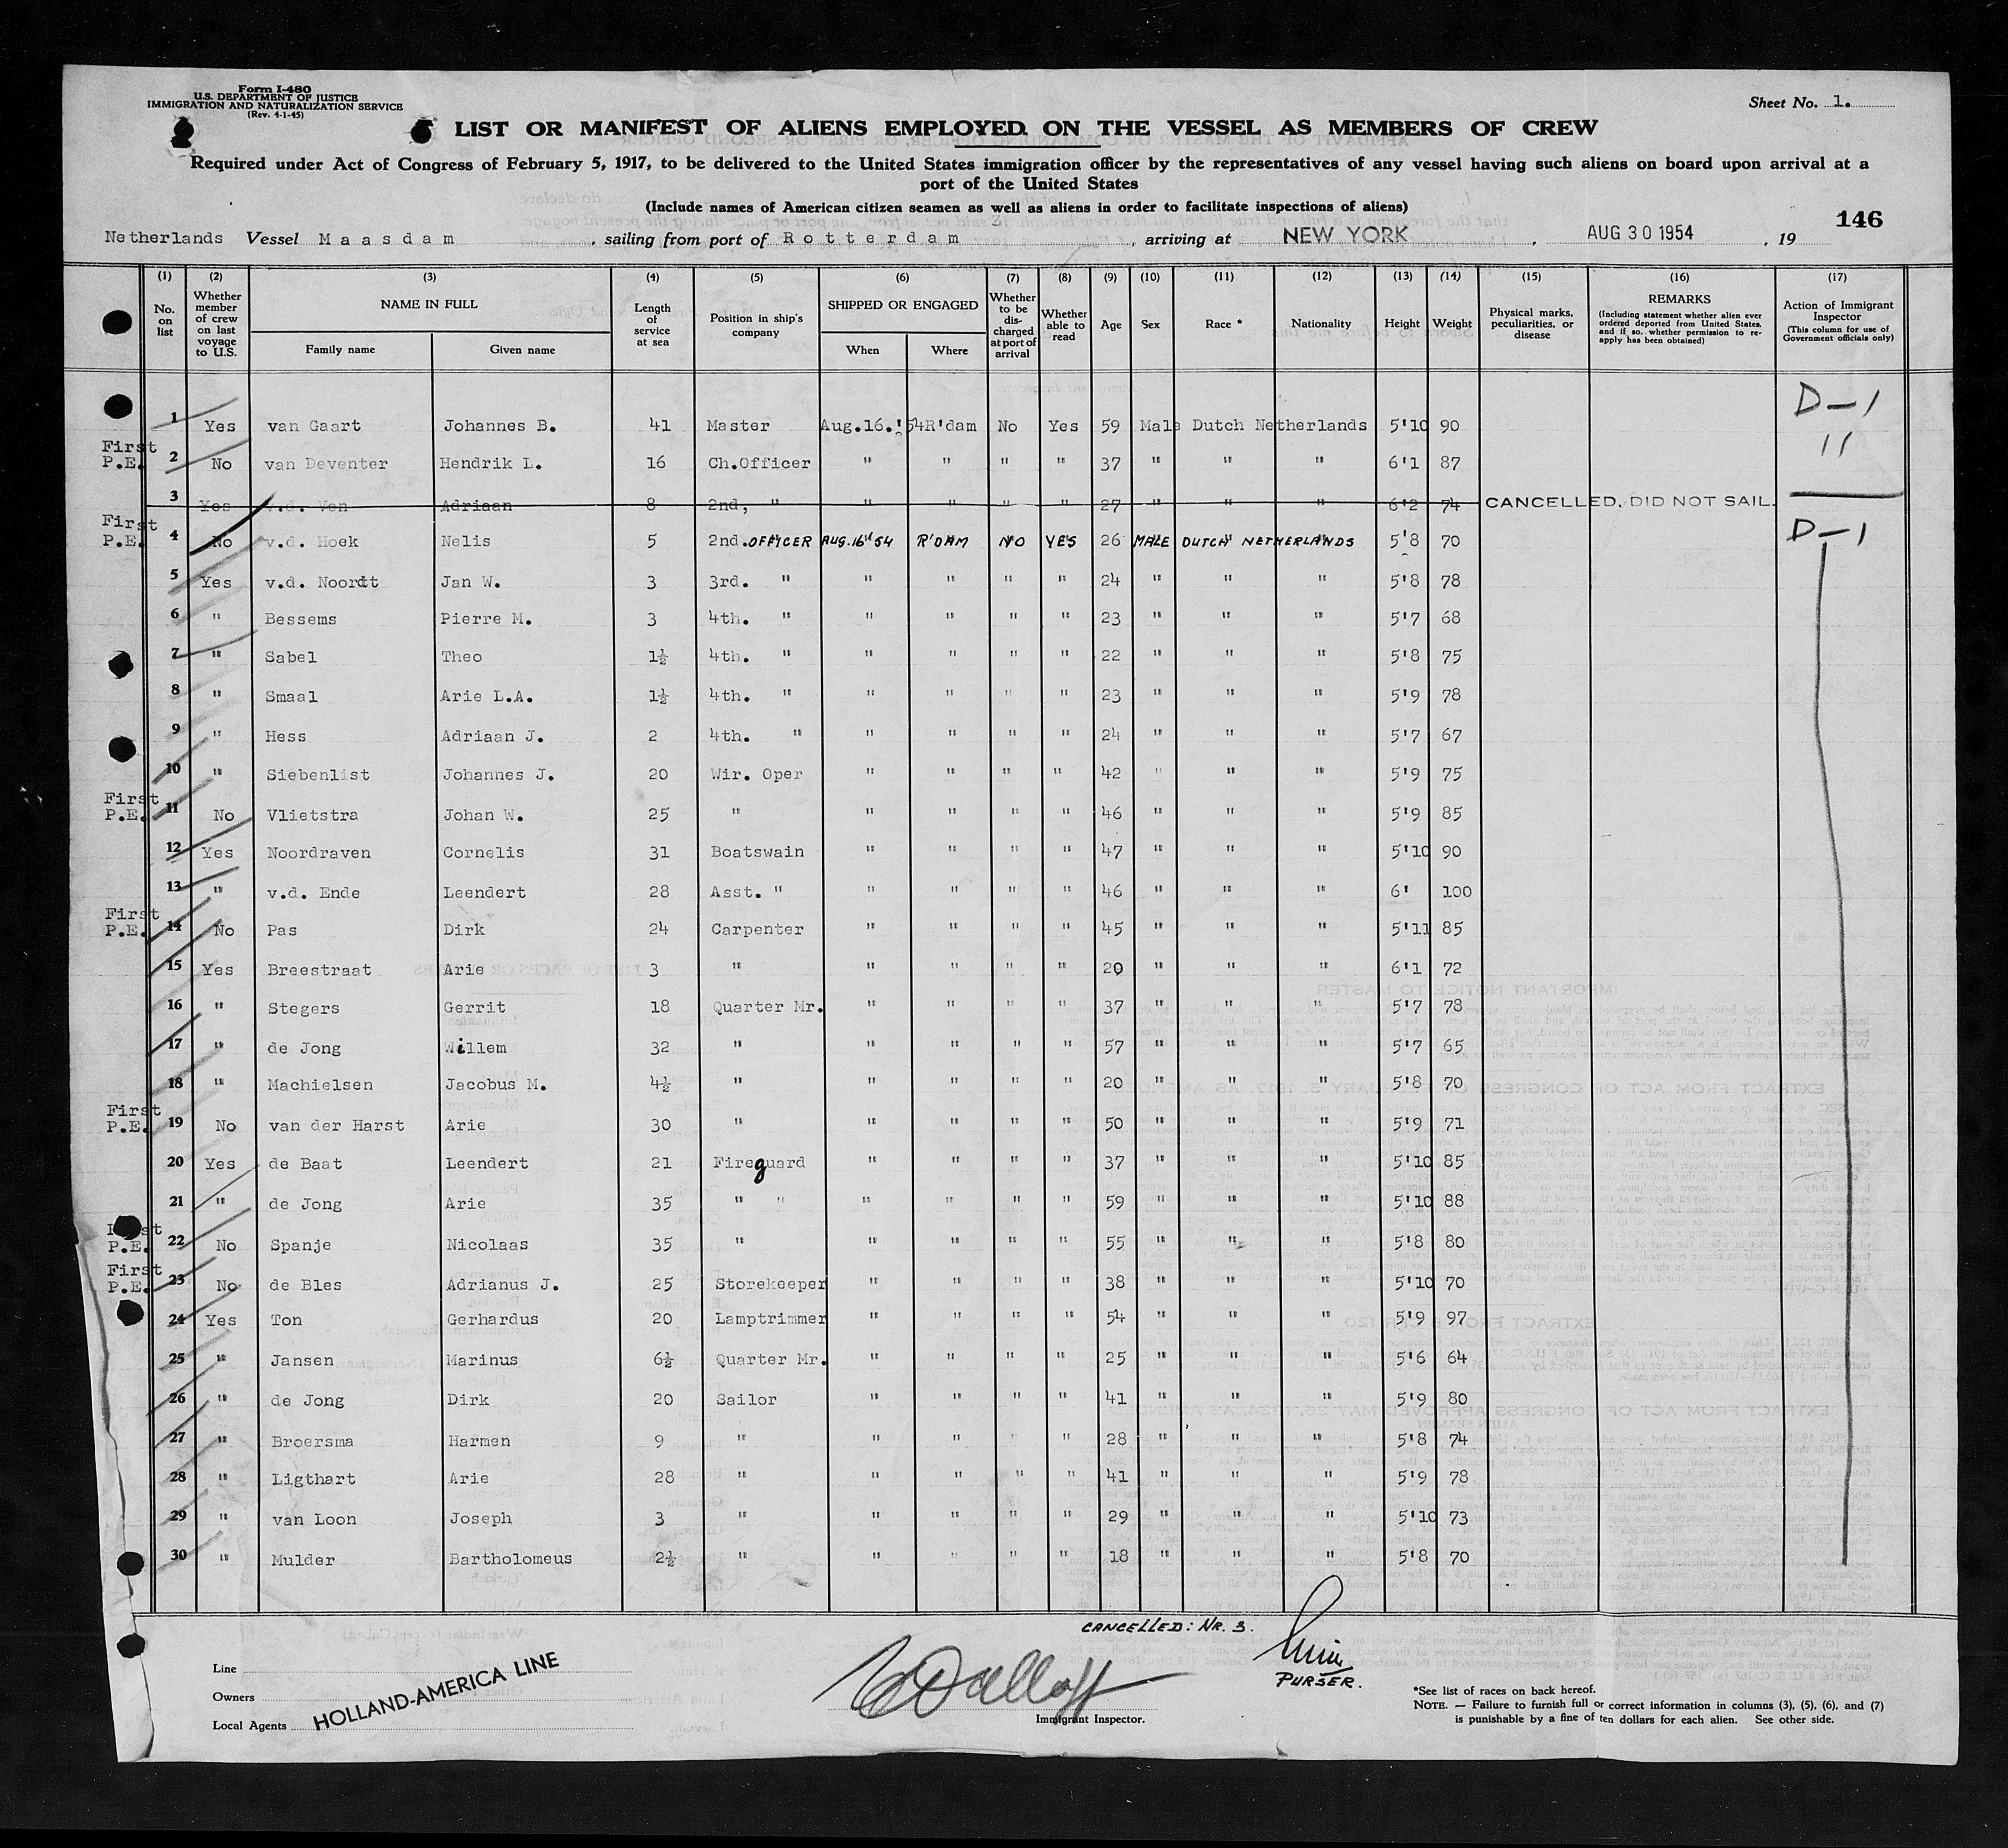 Form I-480
U.S. DEPARTMENT OF JUSTICE
IMMIGRATION AND NATURALIZATION SERVICE
(Rev. 4-1-45)
Sheet No. 1.
LIST OR MANIFEST OF ALIENS EMPLOYED ON THE VESSEL AS MEMBERS OF CREW
Required under Act of Congress of February 5, 1917, to be delivered to the United States immigration officer by the representatives of any vessel having such aliens on board upon arrival at a
port of the United States
(Include names of American citizen seamen as well as aliens in order to facilitate inspections of aliens)
146
Netherlands Vessel Maasdam, sailing from port of Rotterdam, arriving at NEW YORK, AUG 30 1954, 19
(1) (2) (3) (4) (5) (6) (7) (8) (9) (10) (11) (12) (13) (14) (15) (16) (17)
No. on list
Whether member of crew on last voyage to U.S.
NAME IN FULL
Family name Given name
Length of service at sea
Position in ship's company
SHIPPED OR ENGAGED
When Where
Whether to be discharged at port of arrival
Whether able to read
Age Sex Race * Nationality Height Weight
Physical marks, peculiarities, or disease
REMARKS
(Including statement whether alien ever ordered deported from United States, and if so, whether permission to reapply has been obtained)
Action of Immigrant Inspector
(This column for use of Government officials only)
1 Yes van Gaart Johannes B. 41 Master Aug.16.'54 R'dam No Yes 59 Male Dutch Netherlands 5'10 90 D-1
First P.E. 2 No van Deventer Hendrik L. 16 Ch.Officer " " " " 37 " " " 6'1 87 "
3 Yes v.d. Ven Adriaan 8 2nd, " " " " " 27 " " " 6'2 74 CANCELLED, DID NOT SAIL.
First P.E. 4 No v.d. Hoek Nelis 5 2nd. OFFICER AUG.16'54 R'DAM NO YES 26 MALE DUTCH NETHERLANDS 5'8 70 D-1
5 Yes v.d. Noordt Jan W. 3 3rd. " " " " " 24 " " " 5'8 78
6 " Bessems Pierre M. 3 4th. " " " " " 23 " " " 5'7 68
7 " Sabel Theo 1½ 4th. " " " " " 22 " " " 5'8 75
8 " Smaal Arie L.A. 1½ 4th. " " " " " 23 " " " 5'9 78
9 " Hess Adriaan J. 2 4th. " " " " " 24 " " " 5'7 67
10 " Siebenlist Johannes J. 20 Wir. Oper " " " " 42 " " " 5'9 75
First P.E. 11 No Vlietstra Johan W. 25 " " " " " 46 " " " 5'9 85
12 Yes Noordraven Cornelis 31 Boatswain " " " " 47 " " " 5'10 90
13 " v.d. Ende Leendert 28 Asst. " " " " " 46 " " " 6' 100
First P.E. 14 No Pas Dirk 24 Carpenter " " " " 45 " " " 5'11 85
15 Yes Breestraat Arie 3 " " " " " 20 " " " 6'1 72
16 " Stegers Gerrit 18 Quarter Mr. " " " " 37 " " " 5'7 78
17 " de Jong Willem 32 " " " " " 57 " " " 5'7 65
18 " Machielsen Jacobus M. 4½ " " " " " 20 " " " 5'8 70
First P.E. 19 No van der Harst Arie 30 " " " " " 50 " " " 5'9 71
20 Yes de Baat Leendert 21 Fireguard " " " " 37 " " " 5'10 85
21 " de Jong Arie 35 " " " " " " 59 " " " 5'10 88
First P.E. 22 No Spanje Nicolaas 35 " " " " " 55 " " " 5'8 80
First P.E. 23 No de Bles Adrianus J. 25 Storekeeper " " " " 38 " " " 5'10 70
24 Yes Ton Gerhardus 20 Lamptrimmer " " " " 54 " " " 5'9 97
25 " Jansen Marinus 6½ Quarter Mr. " " " " 25 " " " 5'6 64
26 " de Jong Dirk 20 Sailor " " " " 41 " " " 5'9 80
27 " Broersma Harmen 9 " " " " " 28 " " " 5'8 74
28 " Ligthart Arie 28 " " " " " 41 " " " 5'9 78
29 " van Loon Joseph 3 " " " " " 29 " " " 5'10 73
30 " Mulder Bartholomeus 2½ " " " " " 18 " " " 5'8 70
CANCELLED: NR. 3.
PURSER.
Line
Owners
Local Agents
HOLLAND-AMERICA LINE
Immigrant Inspector.
*See list of races on back hereof.
NOTE. — Failure to furnish full or correct information in columns (3), (5), (6), and (7)
is punishable by a fine of ten dollars for each alien. See other side.